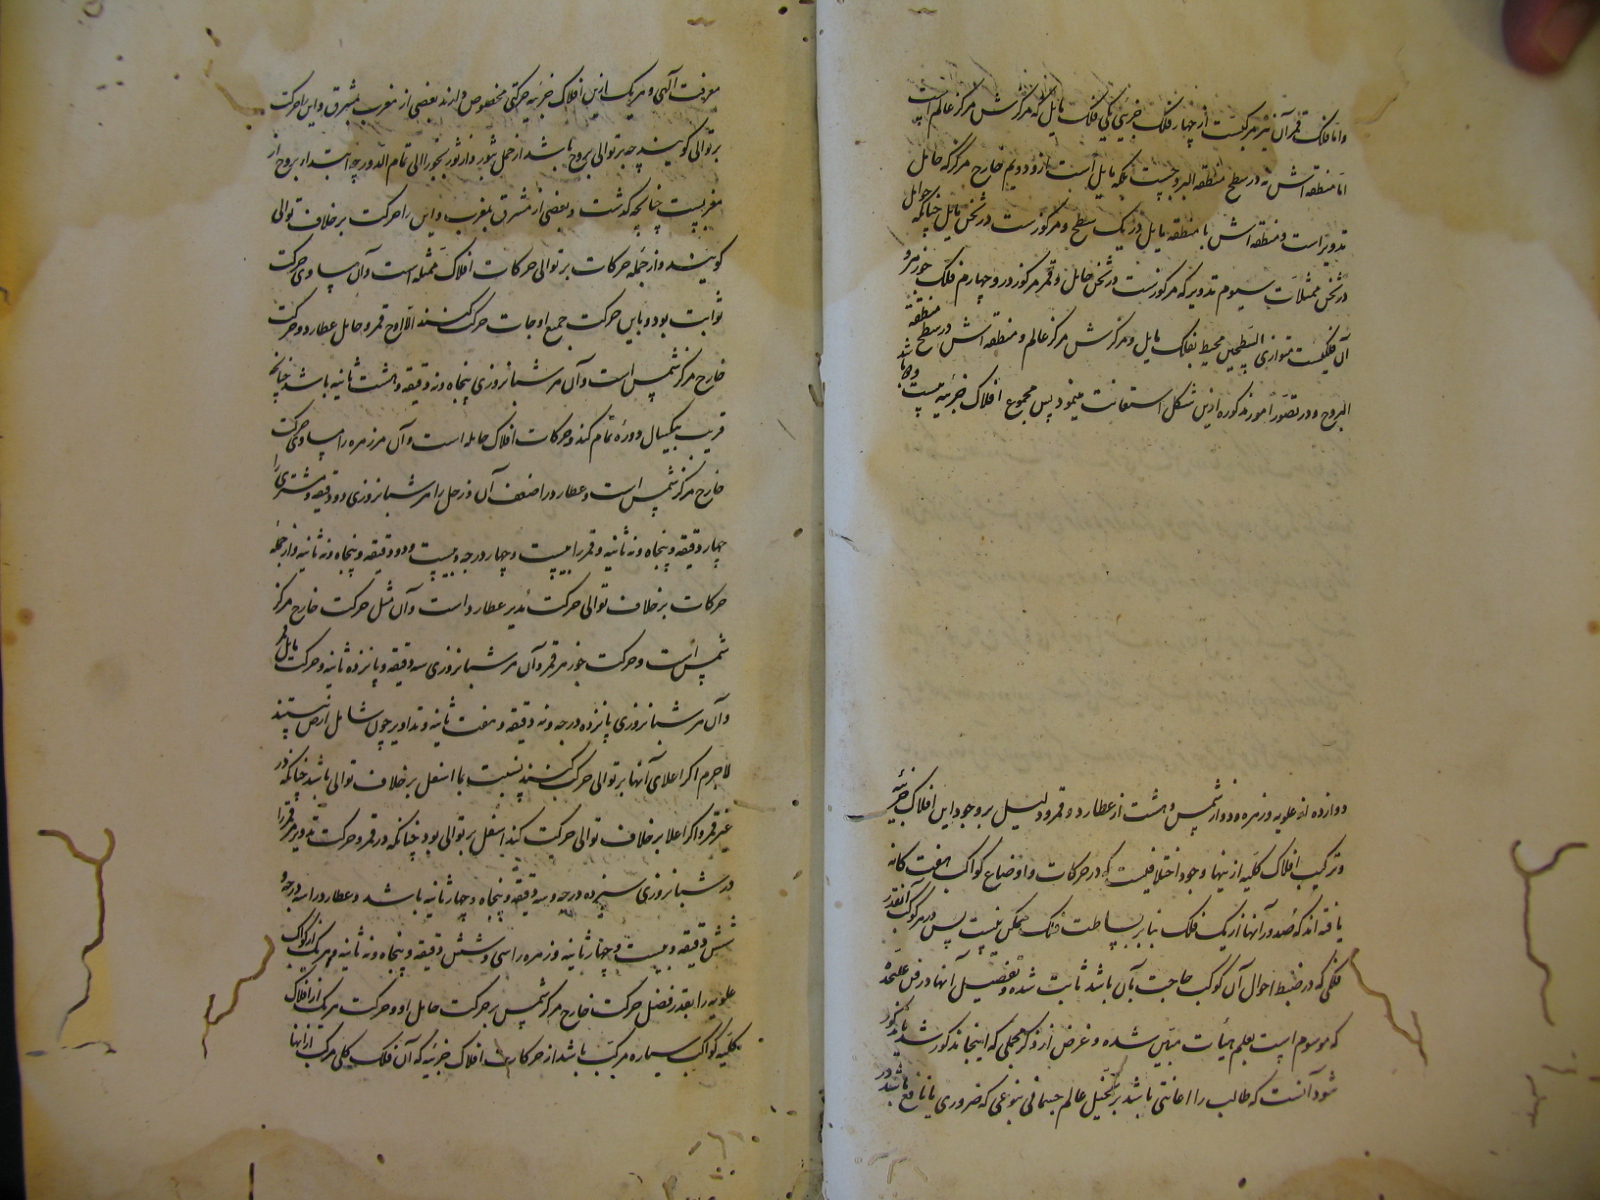 واما فلک قمر آن نیز مرکبست از چهار فلک جزئی یکی فلک مایل که مرکزش مرکز عالم است
اما منطقه اش نه در سطح منطقة البروجست بلکه مایل است ازو و دویم خارج مرکز که حامل
تدویر است و منطقه اش با منطقه مایل در یک سطح و مرکوزست در ثخن مایل چنانکه حوامل
در ثخن ممثلات سیوم تدویر که مرکوزست در ثخن حامل و قمر مرکوز درو چهارم فلک جوزهر و
آن فلکیست متوازی السطحین محیط بفلک مایل و مرکزش مرکز عالم و منطقه اش در سطح منطقة
البروج و در تصور امور مذکوره ازین شکل استعانت مینمود پس مجموع افلاک جزئیه بیست
دوازده از علویه و زهره و دو از شمس و هشت از عطارد و قمر و دلیل بر وجود این افلاک جزئیه
و ترکیب افلاک کلیه ازینها وجود اختلافیست که در حرکات و اوضاع کواکب هفت کانه
یافته اند که صدور آنها از یک فلک بنابر بساطت فلک ممکن نیست پس در هر کوکب آنقدر
فلکی که در ضبط احوال آن کوکب حاجت بآن باشد ثابت شده و تفصیل آنها در فن علیحده
که موسوم است بعلم هیأت مبین شده و غرض از ذکر مجملی که اینجا مذکور شد یا مذکور
شود آنست که طالب را اعانتی باشد بر تخیل عالم جسمانی بنوعی که ضروری یا نافع باشد در
معرفت الهی و هر یک ازین افلاک جزئیه حرکتی مخصوص دارند بعضی از مغرب بمشرق و این را حرکت
بر توالی کویند چه بر توالی بروج باشد از حمل بثور و از ثور بجوزا الی تمام الدور چه ابتداء بروج از
مغربست چنانچه کذشت و بعضی از مشرق بمغرب و این را حرکت بر خلاف توالی
کویند و از جمله حرکات بر توالی حرکات افلاک ممثله است و آن مساوی حرکت
ثوابت بود و باین حرکت جمیع اوجات حرکت کنند الا اوج قمر و حامل عطارد و حرکت
خارج مرکز شمس است و آن هر شبانروزی پنجاه و نه دقیقه و هشت ثانیه باشد چنانچه
قریب بیکسال دوره تمام کند و حرکات افلاک حامله است و آن مر زهره را مساوی حرکت
خارج مرکز شمس است و عطارد را ضعف آن و زحل را هر شبانروزی دو دقیقه و مشتری را
چهار دقیقه و پنجاه و نه ثانیه و قمر را بیست و چهار درجه و بیست و دو دقیقه و پنجاه و نه ثانیه و از جمله
حرکات بر خلاف توالی حرکت مدیر عطارد است و آن مثل حرکت خارج مرکز
شمس است و حرکت جوزهر قمر و آن هر شبانروزی سه دقیقه و پانزده ثانیه و حرکت مایل قمر
و آن هر شبانروزی پانزده درجه و نه دقیقه و هفت ثانیه و تداویر چون شامل ارض نیستند
لاجرم اکر اعلای آنها بر توالی حرکت کنند بنسبت بما اسفل بر خلاف توالی باشد چنانکه در
غیر قمر و اکر اعلا بر خلاف توالی حرکت کند اسفل بر توالی بود چنانکه در قمر و حرکت تدویر مر قمر را
در شبانروزی سیزده درجه و سه دقیقه و پنجاه و چهار ثانیه باشد و عطارد را سه درجه و
شش دقیقه و بیست و چهار ثانیه و زهره را سی و شش دقیقه و پنجاه و نه ثانیه و هر یک از کواکب
علویه را بقدر فضل حرکت خارج مرکز شمس بر حرکت حامل او و حرکت هر یک از افلاک
کلیه کواکب سیاره مرکب باشد از حرکات افلاک جزئیه که آن فلک کلی مرکب از آنها